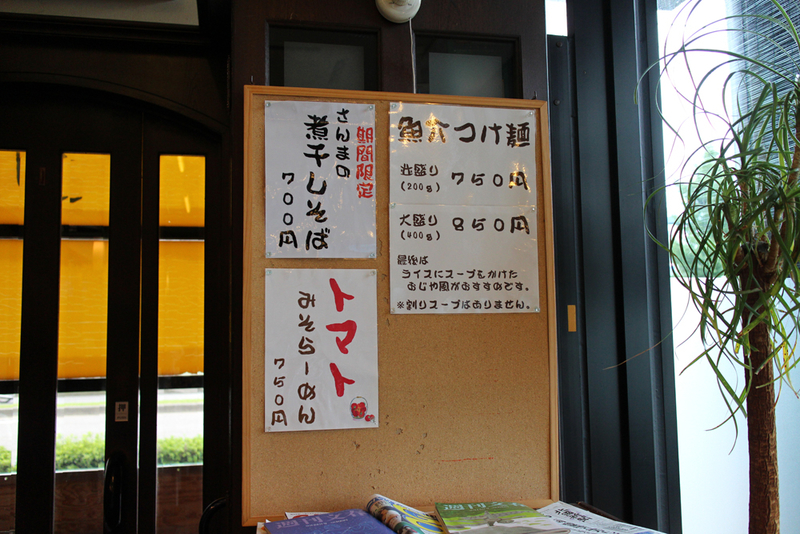 期間限定
さんまの
煮干しそば
700円
魚介つけ麺
並盛り
(200g)
750円
大盛り
(400g)
850円
最後は
ライスにスープをかけた
おじや風がおすすめです。
※割りスープはありません。
トマト
みそらーめん
750円
押
週刊文春